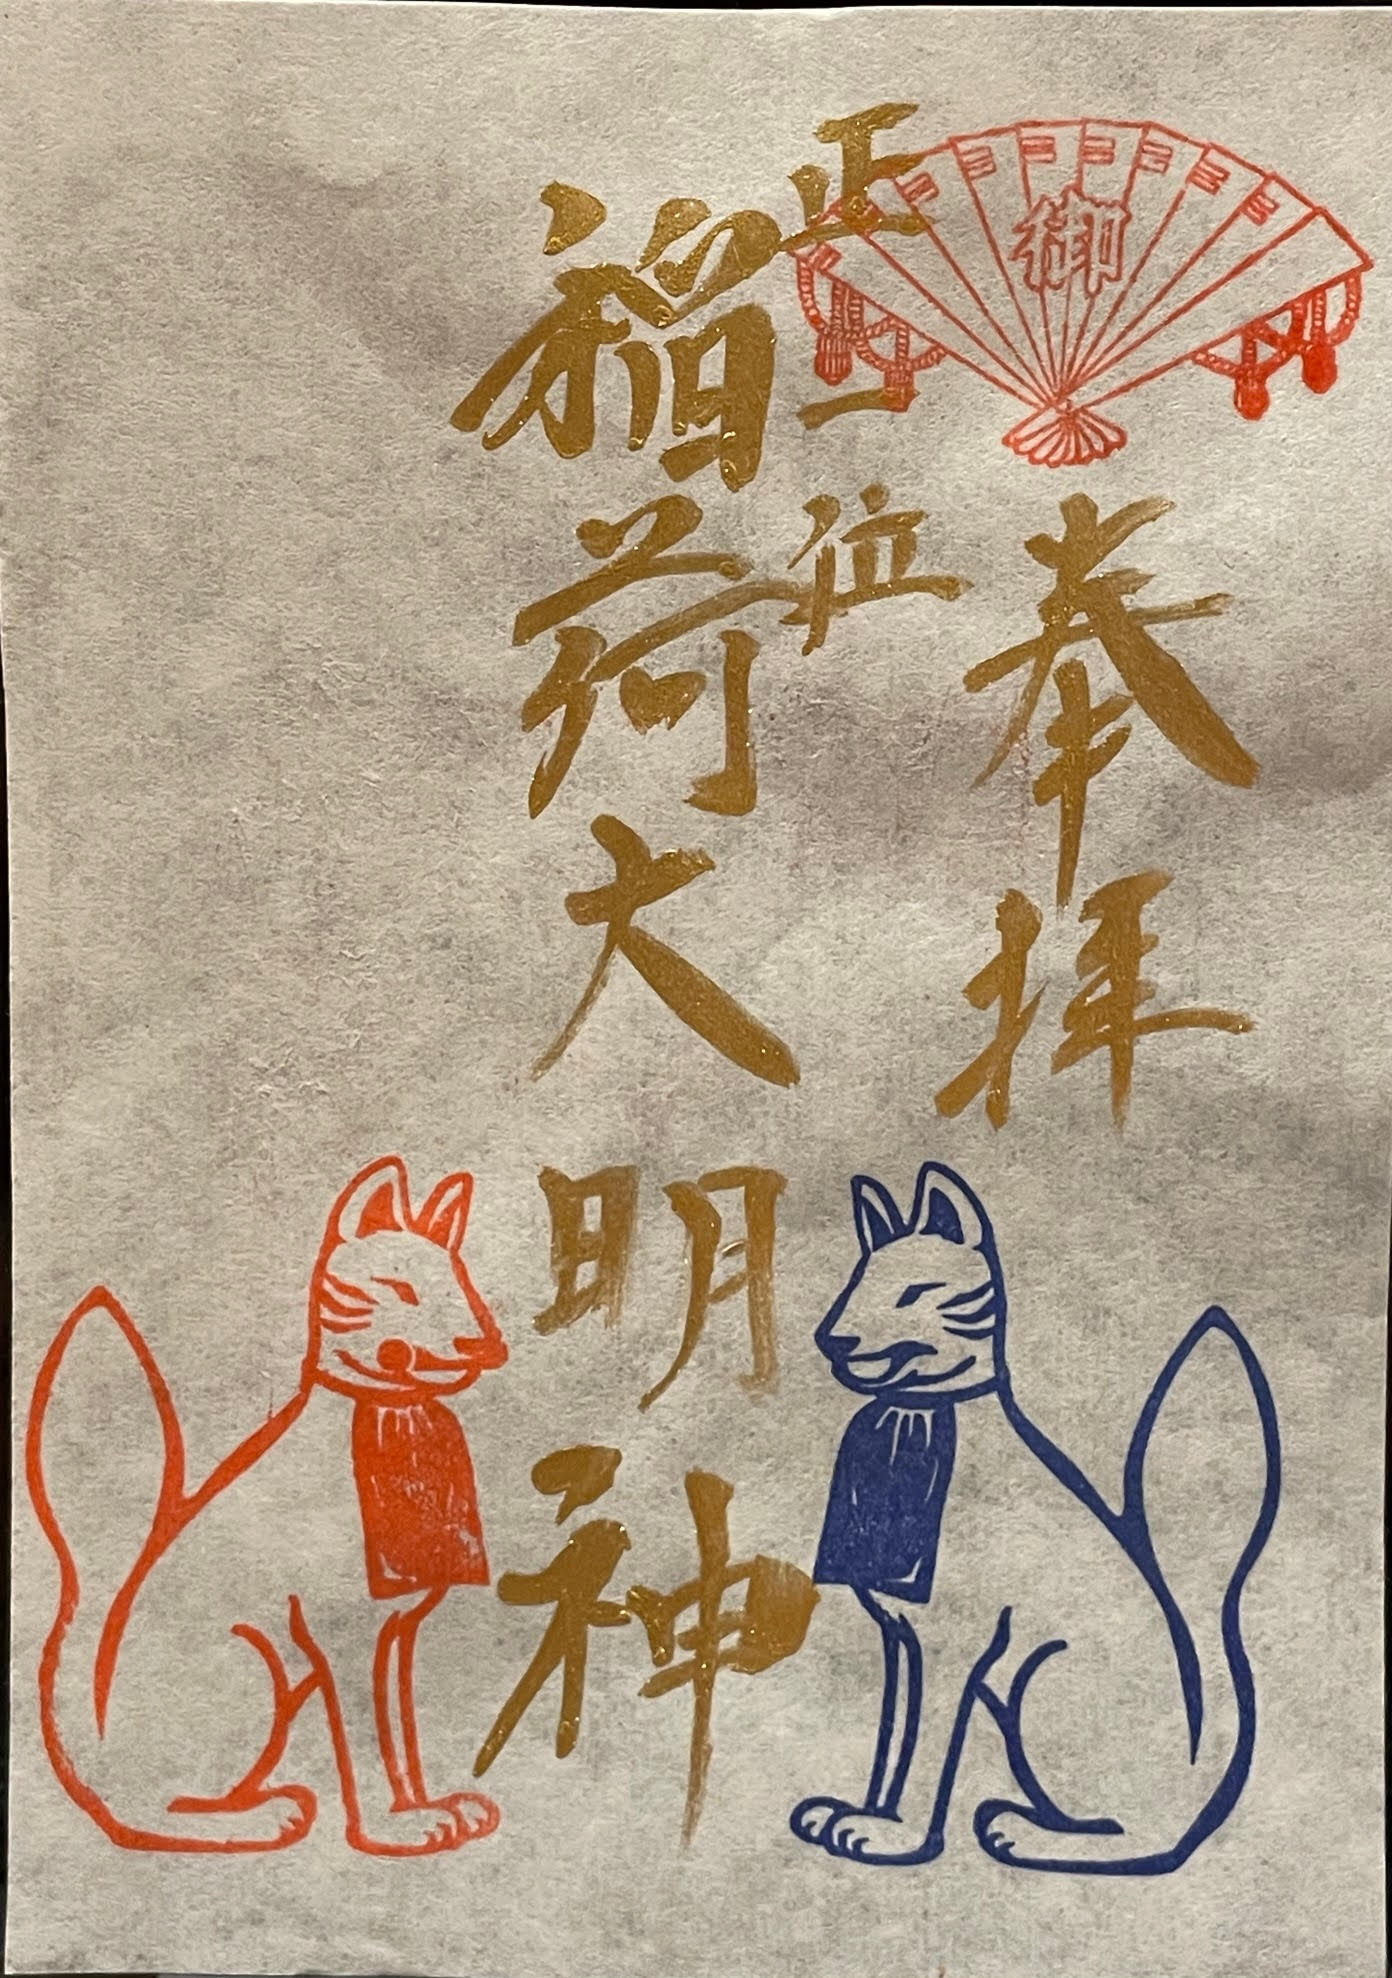 御
奉拝
正一位
稲荷大明神